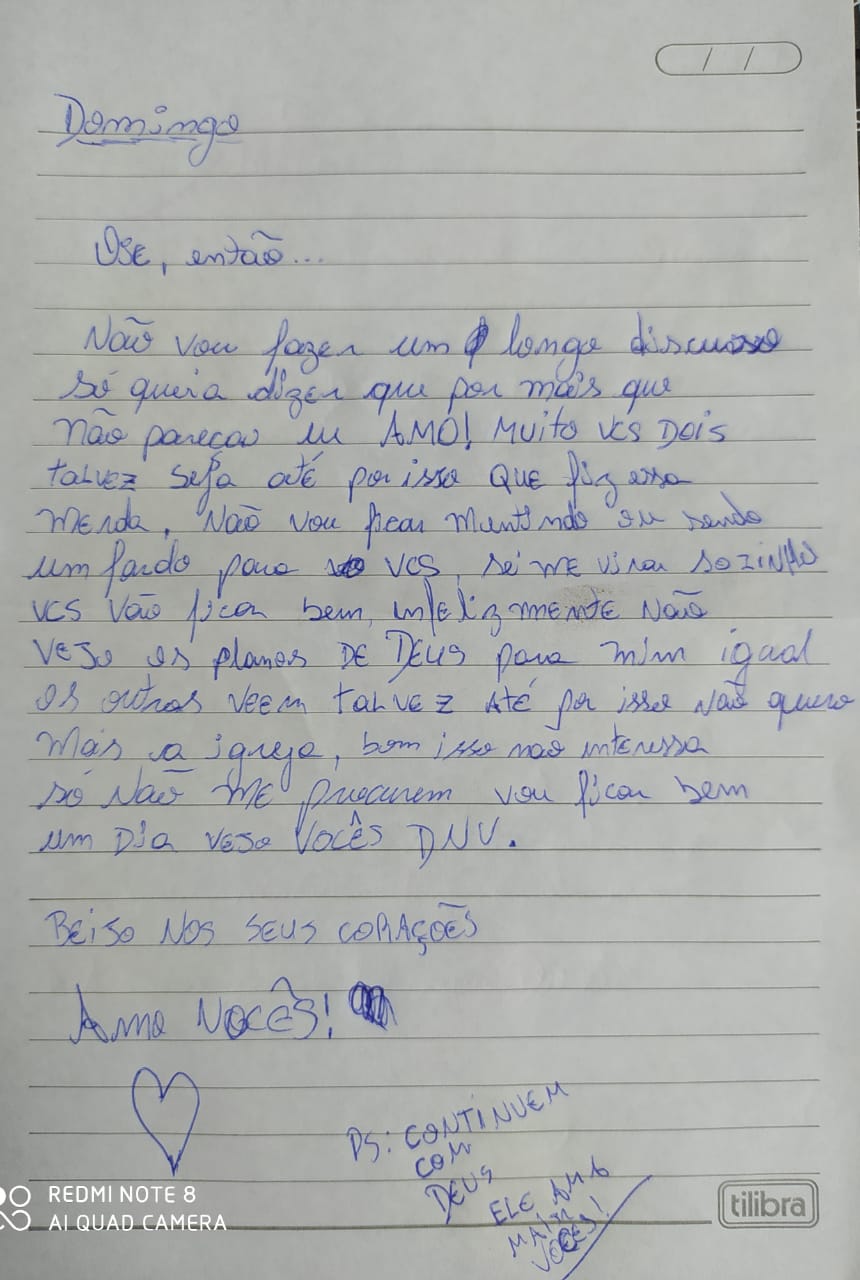 Domingo
OSE, então...
Não vou fazer um longo discurso
só queria dizer que por mais que
não pareça eu AMO! Muito vcs Dois
talvez seja até por isso que fiz essa
merda, Não vou ficar mentindo ou sendo
um fardo para vcs, sei me virar sozinho
vcs vão ficar bem, infelizmente não
vejo os planos DE DEUS para mim igual
os outros veem talvez até por isso não quero
mais ir a igreja, bom isso não interessa
só não me procurem vou ficar bem
um dia vejo Vocês DNV.
Beijo nos seus corações
Amo Vocês!
PS: CONTINUEM
COM
DEUS
ELE AMA
MAIS
VOCÊS!
tilibra
REDMI NOTE 8
AI QUAD CAMERA